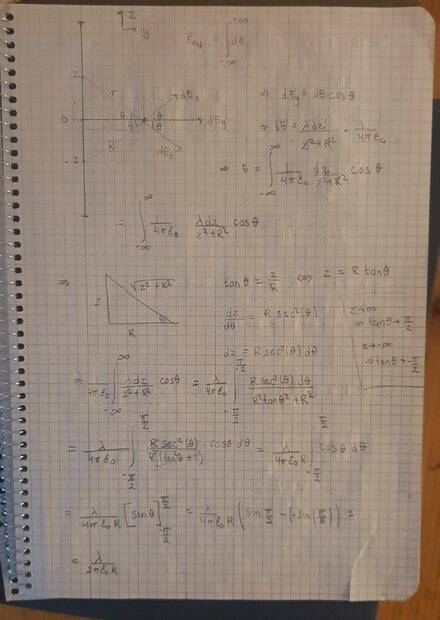 z
y
E_ny = ∫_{-∞}^{-∞} dE
z
r
dE₁
θ θ
0
θ θ
dE_y
R
dE₂
-z
⇒ dE_y = dE cosθ
⇒ dE = λdz / z²+R² · 1/4πε₀
⇒ E = ∫_{-∞}^{∞} 1/4πε₀ dq/z²+R² cosθ
= ∫_{-∞}^{∞} 1/4πε₀ λdz/z²+R² cosθ
⇒
√z²+R²
z
θ
R
tanθ = z/R ⇔ z = R tanθ
dz/dθ = R sec²(θ)
dz = R sec²(θ) dθ
z→∞
⇒ tanθ→π/2
z→-∞
⇒ tanθ→-π/2
⇒ 1/4πε₀ ∫_{-∞}^{∞} λdz/z²+R² cosθ = λ/4πε₀ ∫_{-π/2}^{π/2} R sec²(θ) dθ / R²tanθ²+R²
= λ/4πε₀ ∫_{-π/2}^{π/2} R sec²(θ) · cosθ dθ / R²(tan²θ+1) = λ/4πε₀R ∫_{-π/2}^{π/2} cosθ dθ
= λ/4πε₀R [sinθ]_{-π/2}^{π/2} = λ/4πε₀R (sin π/2 - (-sin(π/2)) =
= λ/2πε₀R